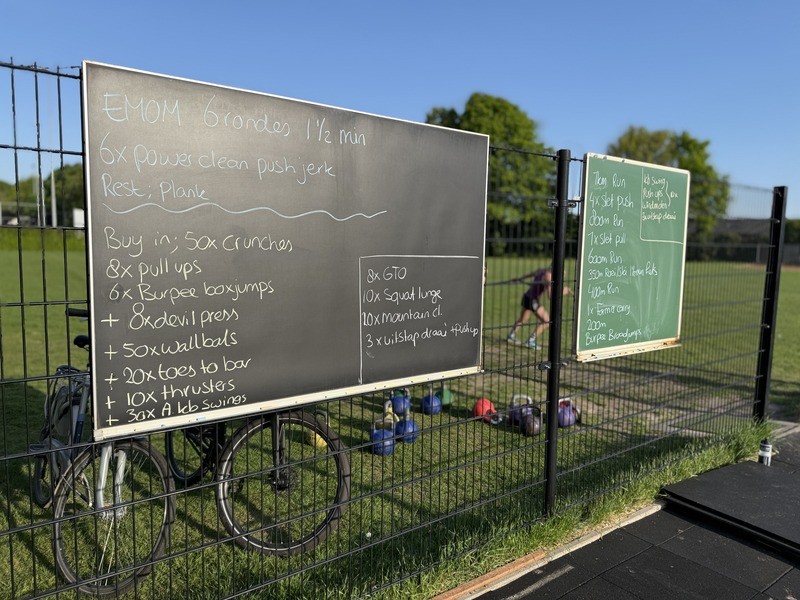 EMOM 6 rondes 1½ min
6x power clean push jerk
Rest; Plank
Buy in; 50x crunches
8x pull ups
6x Burpee boxjumps
+ 8x devil press
+ 50x wallbals
+ 20x toes to bar
+ 10x thrusters
+ 30x A kb swings
8x GTO
10x Squat lunge
20x mountain cl.
3x uitstap draai + push up
Run
4x slet push
800m Run
7x slet pull
600m Run
350m Row/Ski
400m Run
1x farmer carry
200m
Burpee Broadjumps
kb swing
Push ups